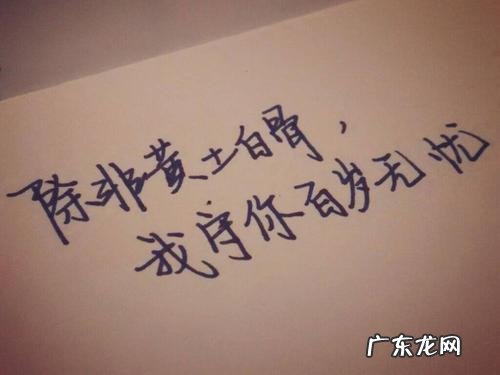 除非黄土白骨，
我守你百岁无忧
广东龙网